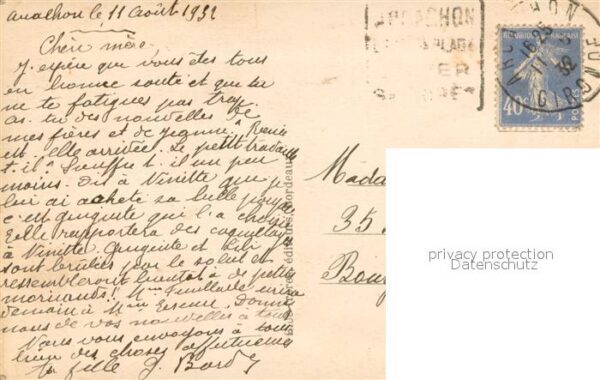 Arcachon le 11 Août 1932
Chère mère,
J'espère que vous êtes tous
en bonne santé et que tu
ne te fatigues pas trop
as tu des nouvelles de
mes frères et de
est elle arrivée. Le petit
t. il Souffre t. il un peu
moins. Dit à Ninette que j
lui ai acheté sa belle poupée
c'est qui l'a choisie
Elle rapportera des coquillages
à Ninette. et
sont brulés par le soleil et
ressembleront bientôt à de petits
moricauds! Mme écrira
demain à Mme Donne
nous de vos nouvelles à tous
Nous vous envoyons à tous
bien des choses affectueuses
ta fille J. Bord
ARCACHON
PLAGE
ARCACHON
GIRONDE
REPUBLIQUE FRANCAISE
40
POSTES
éditeurs, Bordeaux
Mada
35
Bou
privacy protection
Datenschutz